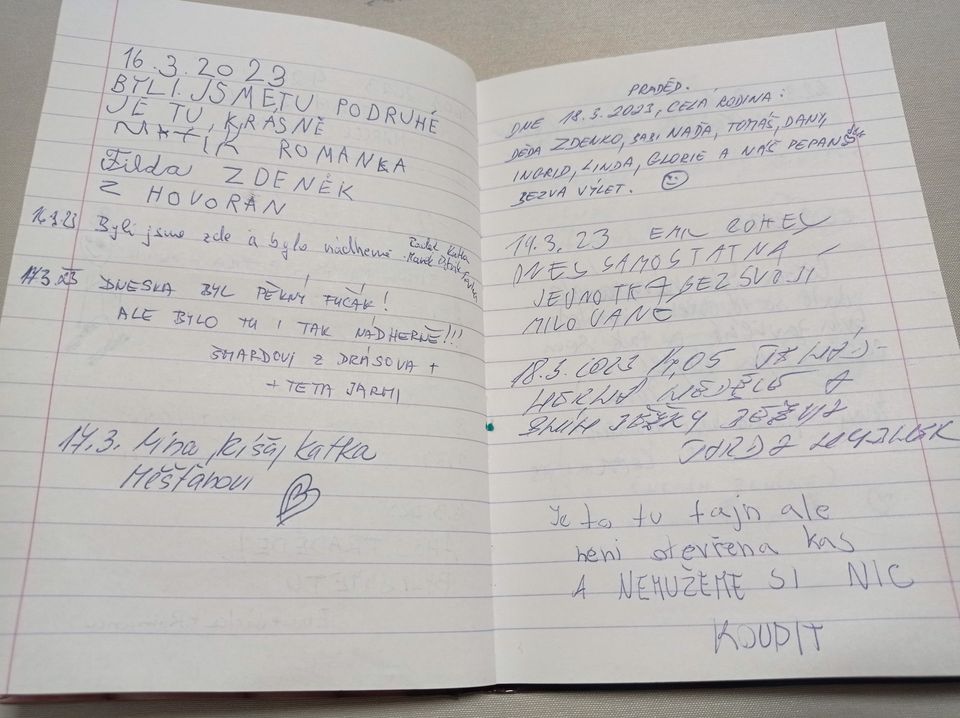 16.3.2023
BYLI JSMETU PODRUHÉ
JE TU KRÁSNĚ
ROMANKA
Filda ZDENĚK
Z HOVORAN
16.3.23 Byli jsme zde a bylo nádherně Radek Katka
Marek
17.3.23 DNESKA BYL PĚKNÝ FUČÁK!
ALE BYLO TU I TAK NÁDHERNĚ!!!
ŠMARDOVI Z DRÁSOVA +
+ TETA JARMI
17.3. Mína, Kíša, Katka
Měšťánovi
PRADĚD.
DNE 18.3.2023, CELÁ RODINA:
DĚDA ZDENKO, NAĎA, TOMÁŠ, DANY,
INGRID, LINDA, GLORIE A NÁŠ PEPAN
BEZVA VÝLET.
19.3.23 EMIL
DNES SAMOSTATNÁ
JEDNOTKA BEZ SVOJÍ
MILOVANÉ
18.3.2023 14,05
A
JARDA
Je to tu tajn ale
neni otevřena kas
A NEMUŽEME SI NIC
KOUPIT